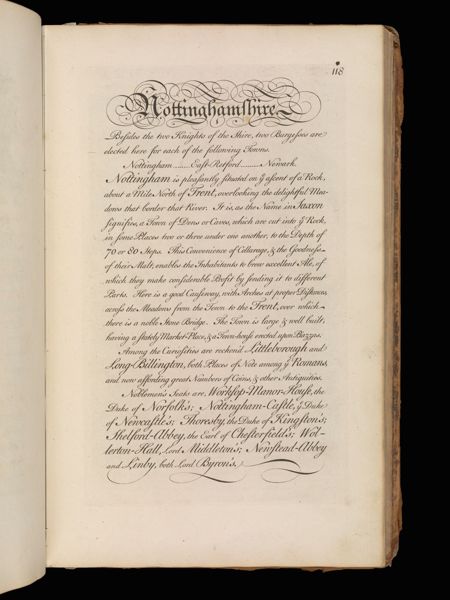 118
Nottinghamshire
Besides the two Knights of the Shire, two Burgesses are
elected here for each of the following Towns.
Nottingham ...... East-Retford ........ Newark.
Nottingham is pleasantly situated on ÿ ascent of a Rock,
about a Mile North of Trent, overlooking the delightful Mea-
dows that border that River. It is, as the Name in Saxon
signifies, a Town of Dens or Caves, which are cut into ÿ Rock,
in some Places two or three under one another, to the Depth of
70 or 80 Steps. This Convenience of Cellarage, & the Goodness
of their Malt, enables the Inhabitants to brew excellent Ale, of
which they make considerable Profit by sending it to different
Parts. Here is a good Causeway, with Arches at proper Distances,
across the Meadows from the Town to the Trent, over which
there is a noble Stone Bridge. The Town is large & well built;
having a stately Market-Place, & a Town-house erected upon Piazzas.
Among the Curiosities are reckon'd Littleborough and
Long-Billington, both Places of Note among ÿ Romans,
and now affording great Numbers of Coins, & other Antiquities.
Noblemen's Seats are, Worksop-Manor-House, the
Duke of Norfolk's; Nottingham-Castle, ÿ Duke
of Newcastle's; Thoresby, the Duke of Kingston's;
Shelford-Abbey, the Earl of Chesterfield's; Wol-
lerton-Hall, Lord Middleton's; Newstead-Abbey
and Linby, both Lord Byron's.